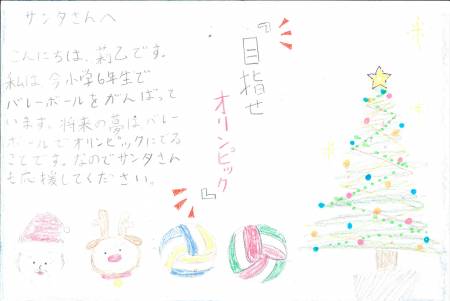 サンタさんへ
こんにちは、莉乙です。
私は今小学6年生で
バレーボールをがんばって
います。将来の夢はバレー
ボールでオリンピックにでる
ことです。なのでサンタさん
も応援してください。
『目指せ
オリンピック』